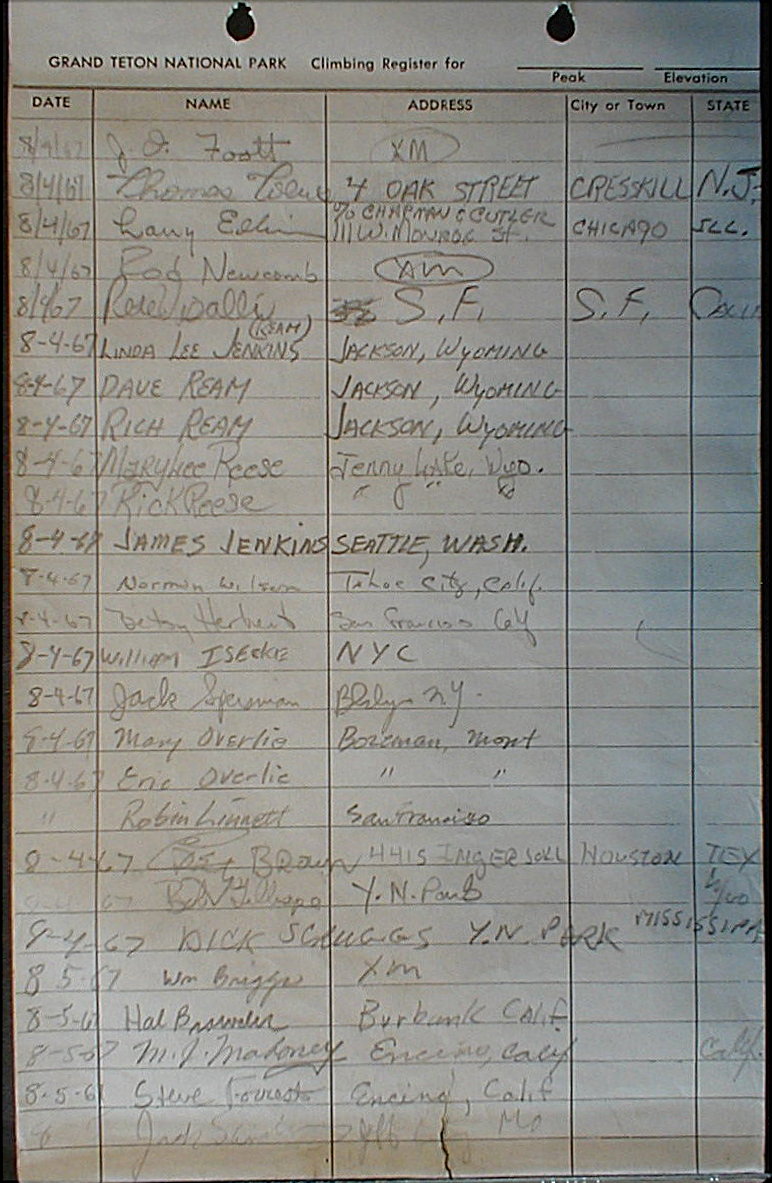 GRAND TETON NATIONAL PARK Climbing Register for
Peak Elevation
DATE NAME ADDRESS City or Town STATE
8/4/67 J. O. Foott XM
8/4/67 Thomas 4 OAK STREET CRESSKILL N.J.
c/o CHAPMAN & CUTLER
8/4/67 Larry 111 W. MONROE St. CHICAGO ILL.
8/4/67 Rod Newcomb XM
8/4/67 S.F. S.F. Calif
(REAM)
8-4-67 LINDA LEE JENKINS JACKSON, WYOMING
8-4-67 DAVE REAM JACKSON, WYOMING
8-4-67 RICH REAM JACKSON, WYOMING
8-4-67 MaryLee Reese Jenny Lake, Wyo.
8-4-67 Rick Reese " " "
8-4-67 JAMES JENKINS SEATTLE, WASH.
8-4-67 Norman Wilson Tahoe City, Calif.
8-4-67 Betsy Herbert San Francisco Calif
8-4-67 William NYC
8-4-67 Jack Bklyn NY.
8-4-67 Mary Overlie Bozeman, Mont
8-4-67 Eric Overlie " "
" Robin Linnett San Francisco
8-4-67 Brown 4415 INGERSOLL HOUSTON TEX
67 Bob Y. N. Park
8-4-67 DICK SCRUGGS Y.N. PARK MISSISSIPPI
8 5-67 Wm Briggs XM
8-5-67 Hal Burbank Calif.
8-5-67 M. J. Mahoney Encino, Calif Calif.
8-5-67 Steve Encino, Calif
8 Mo